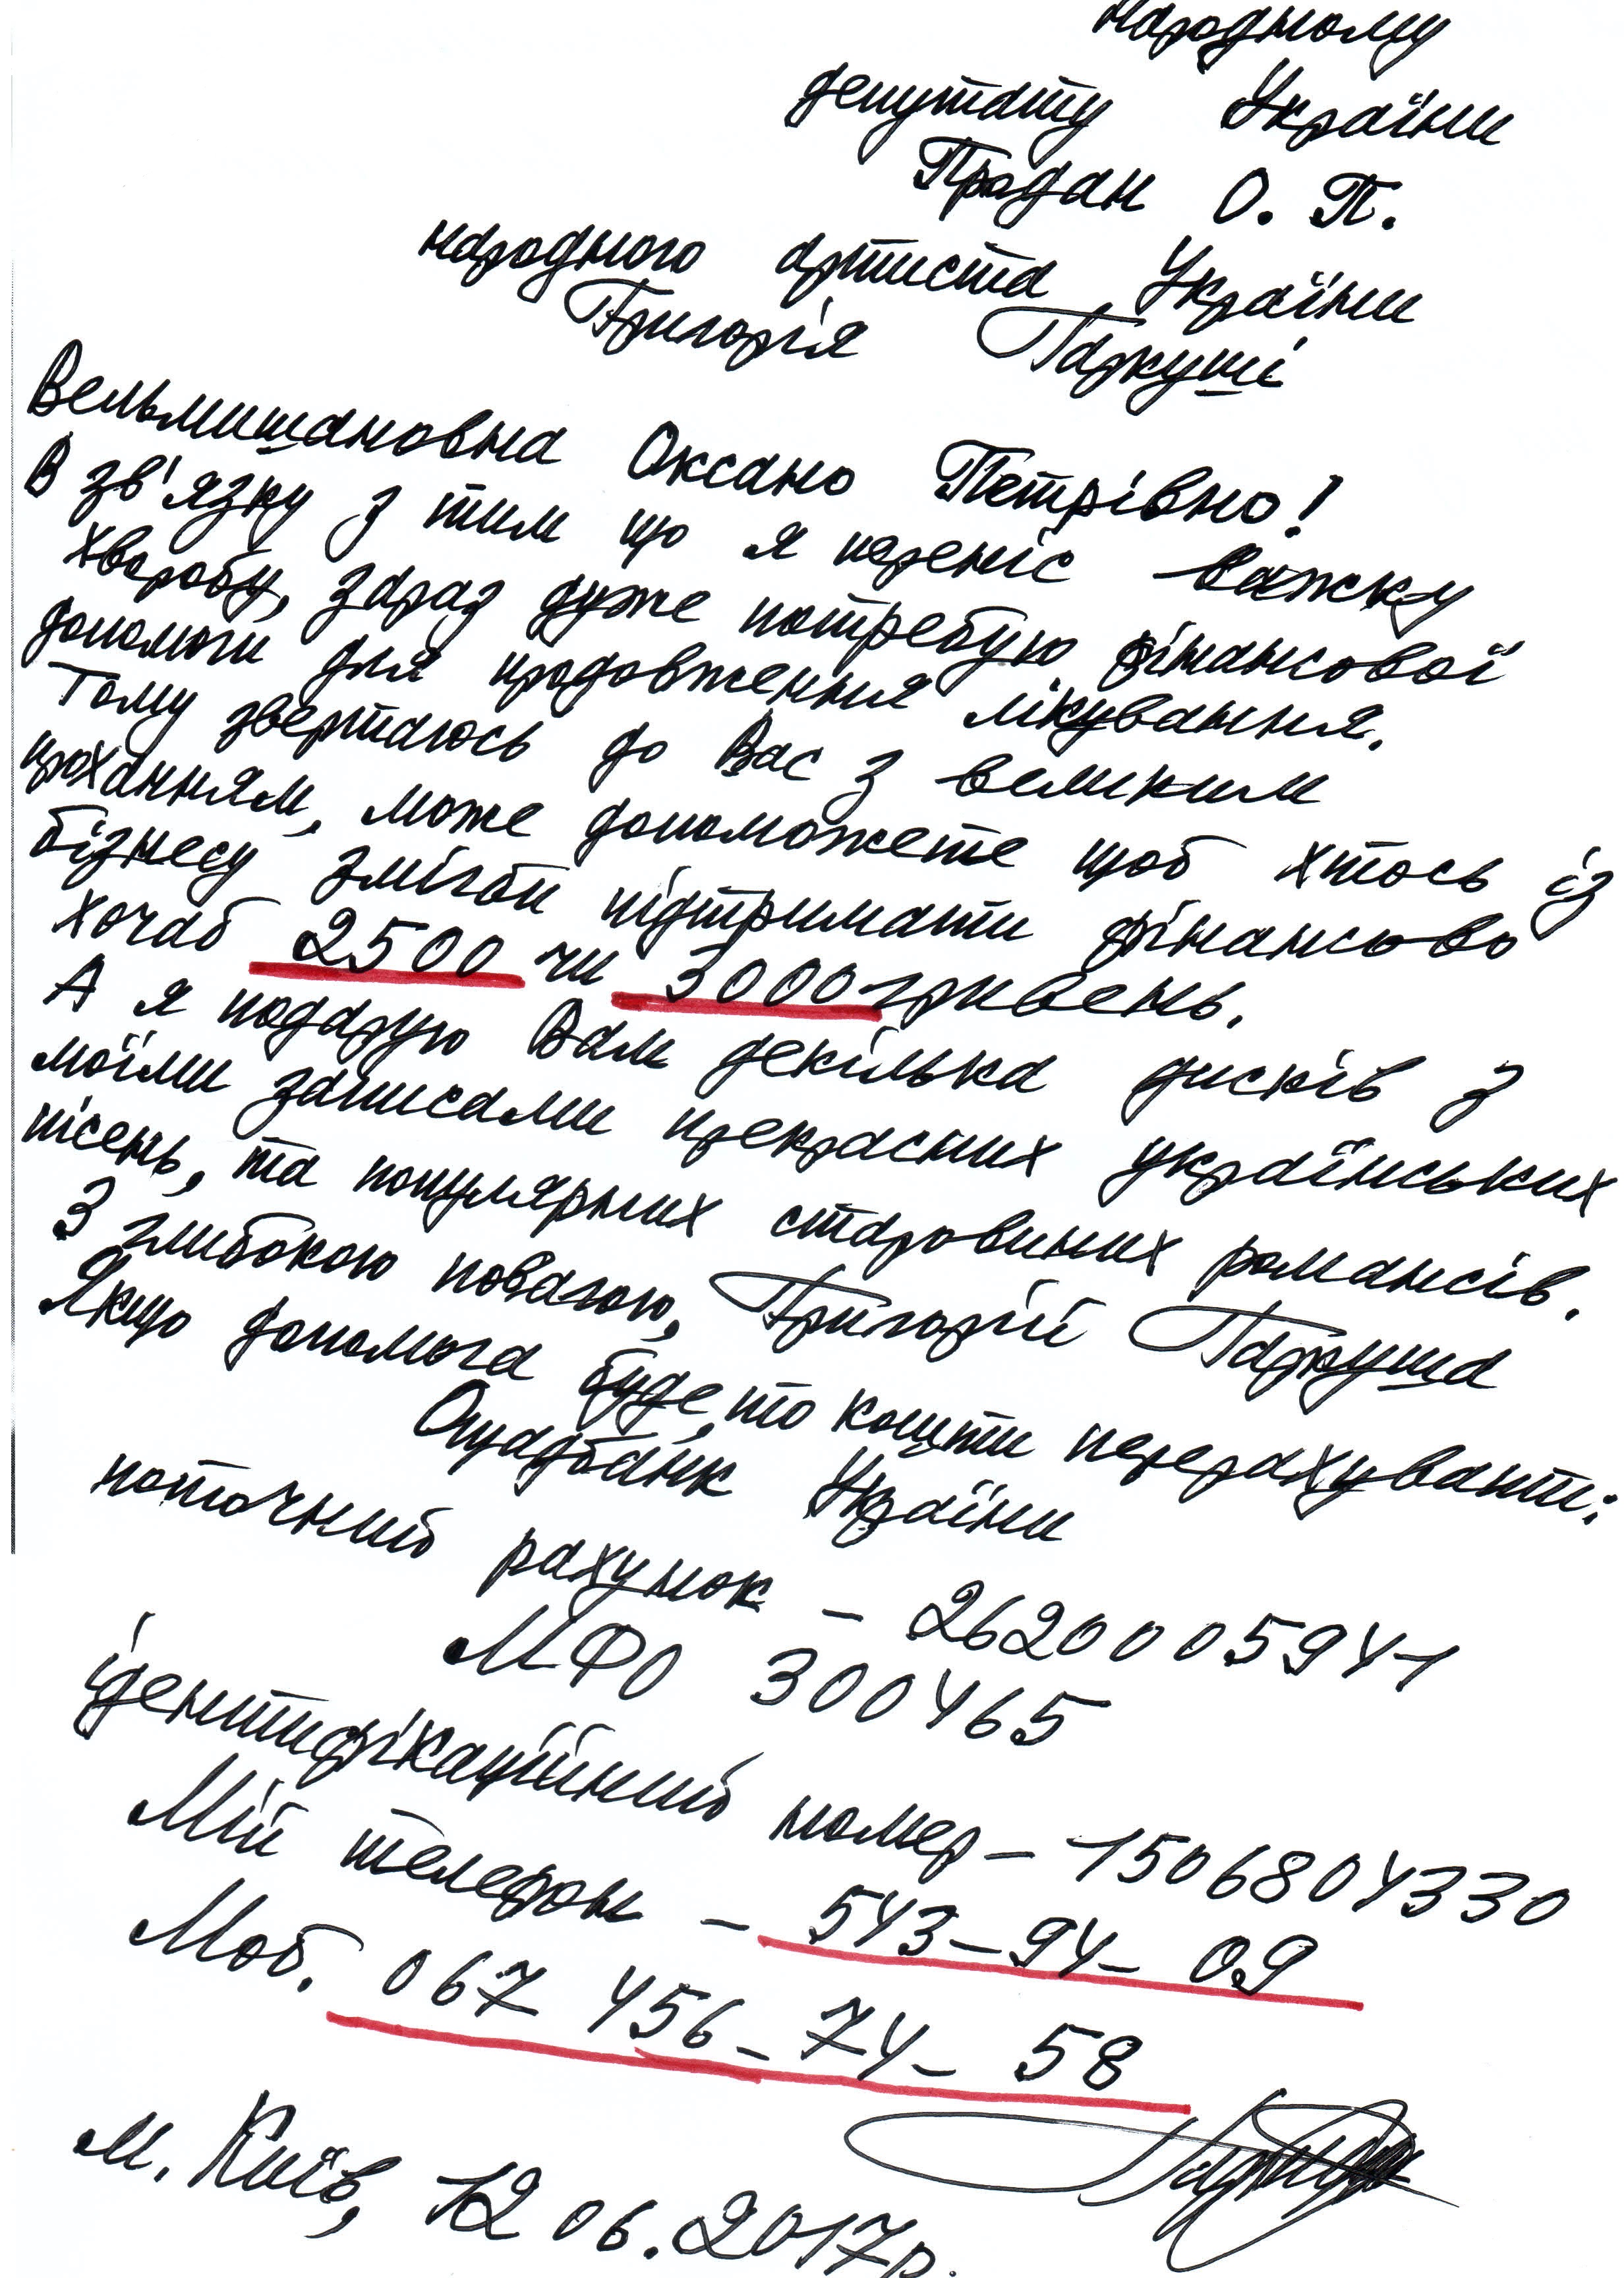 народному
депутату України
Продан О. П.
народного артиста України
Григорія Гаркуші
Вельмишановна Оксано Петрівно!
В зв'язку з тим що я переніс важку
хворобу, зараз дуже потребую фінансової
допомоги для продовження лікування.
Тому звертаюсь до Вас з великим
проханням, може допоможете щоб хтось із
бізнесу зміг би підтримати фінансово
хочаб 2500 чи 3000 гривень.
А я подарую Вам декілька дисків з
моїми записами прекрасних українських
пісень, та популярних старовиних романсів.
З глибокою повагою, Григорій Гаркуша
Якщо допомога буде, то кошти перерахувати:
Ощадбанк України
поточний рахунок – 2620005941
МФО 300465
ідентифікаційний номер – 1506804330
Мій телефон – 543–94–09
Моб. 067 456–74–58
м. Київ, 12 06.2017р.